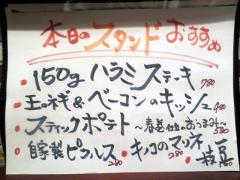 本日のスタンドおすすめ
・150gハラミステーキ 780
・玉ねぎ&ベーコンのキッシュ 480
・スティックポテト 〜春巻仕立のおつまみ〜 380
・自家製ピクルス 280 ・キノコのマリネ 280 ・枝豆